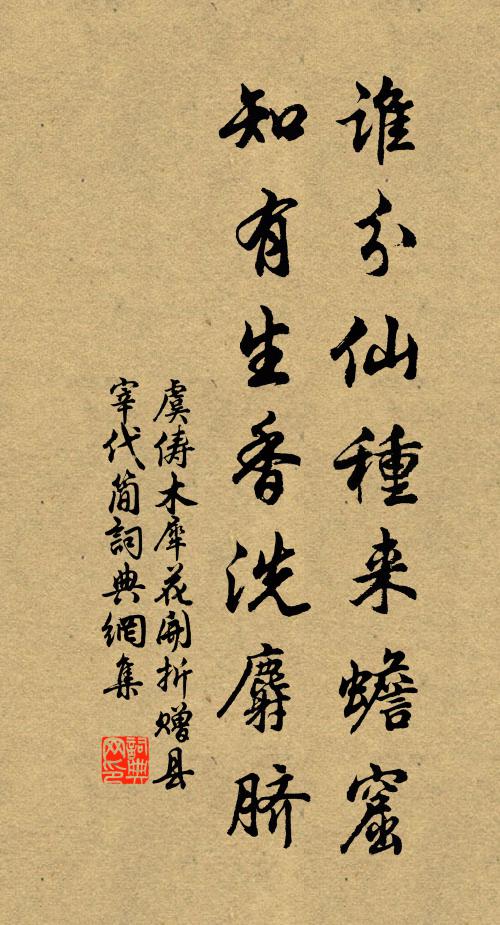 谁分仙種来蟾窟
知有生香洗麝脐
虞俦木犀花開折赠县
宰代简詞典網集
詞典网印